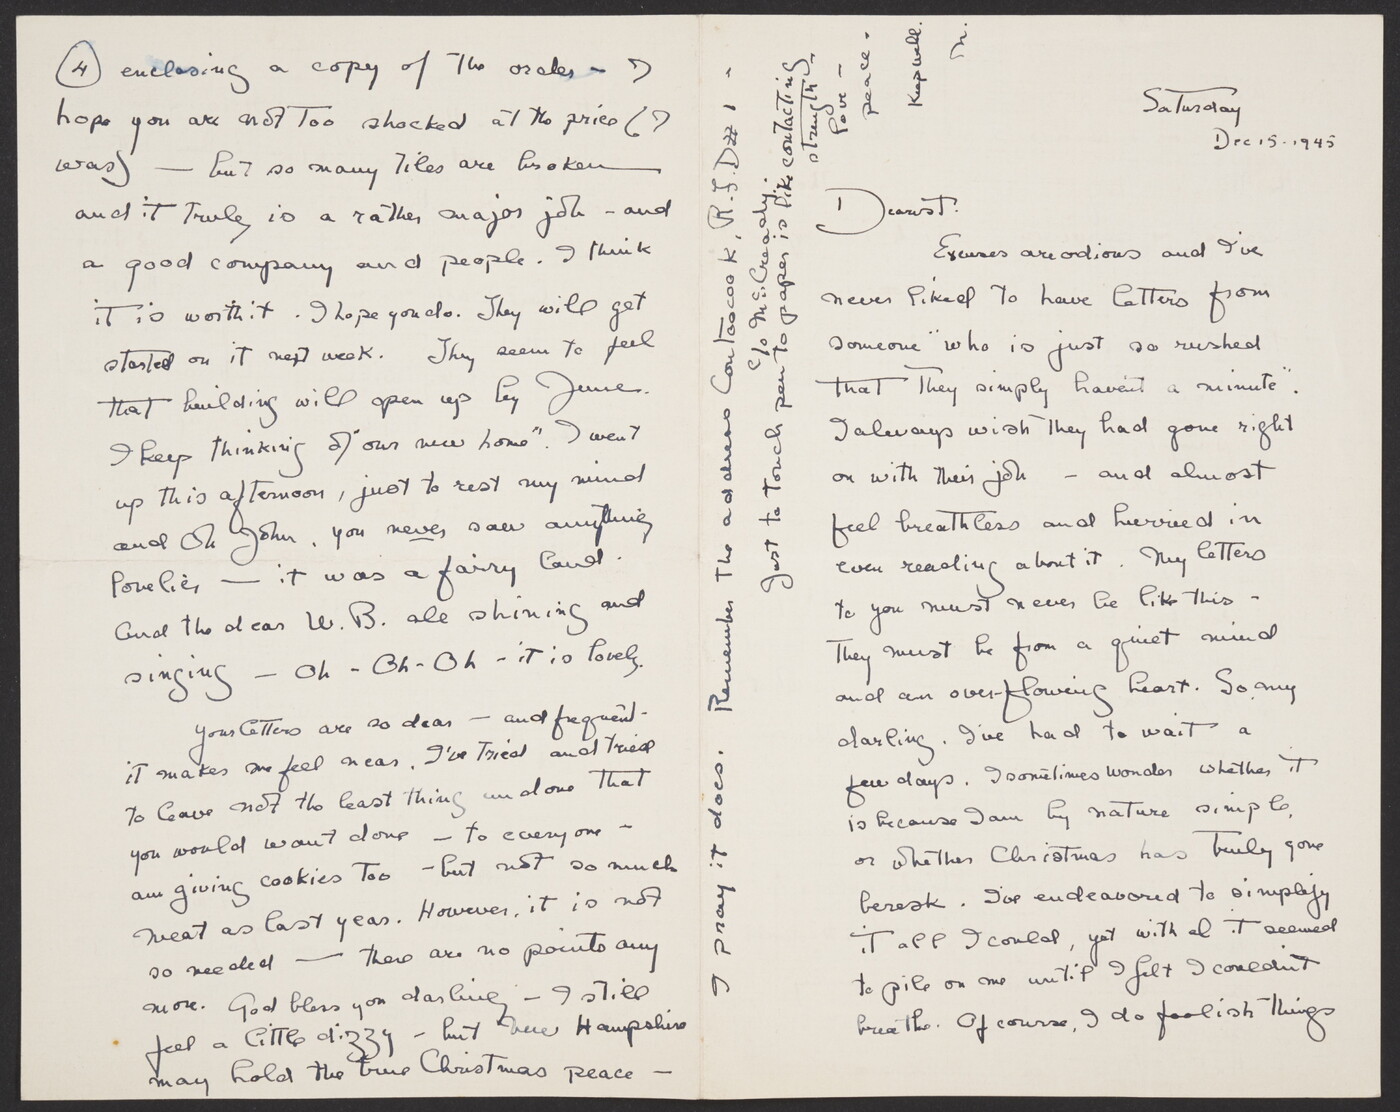 Saturday
Dec 15. 1945
Dearest:
Excuses are odious and I've
never liked to have letters from
someone "who is just so rushed
that they simply haven't a minute".
I always wish they had gone right
on with their job - and almost
feel breathless and hurried in
even reading about it. My letters
to you must never be like this -
They must be from a quiet mind
and an over-flowing heart. So, my
darling, I've had to wait a
few days. I sometimes wonder whether it
is because I am by nature simple,
or whether Christmas has truly gone
beresk. I've endeavored to simplify
it all I could, yet with al it seemed
to pile on me until I felt I couldn't
breathe. Of course, I do foolish things
4 enclosing a copy of the order - I
hope you are not too shocked at the price (I
was) — but so many tiles are broken —
and it truly is a rather major job - and
a good company and people. I think
it is worth it. I hope you do. They will get
started on it next week. They seem to feel
that building will open up by June.
I keep thinking of "our new home". I went
up this afternoon, just to rest my mind
and Oh John, you never saw anything
lovelier — it was a fairy land.
And the dear W.B. all shining and
singing — Oh - Oh - Oh - it is lovely.
Your letters are so dear — and frequent -
it makes me feel near. I've tried and tried
to leave not the least thing undone that
you would want done — to everyone -
am giving cookies too - but not so much
meat as last year. However, it is not
so needed — there are no points any
more. God bless you darling - I still
feel a little dizzy - but New Hampshire
may hold the true Christmas peace —
I pray it does. Remember the address Contoocook, R.F.D. # 1 -
c/o McCready.
Just to touch pen to paper is like contacting
strength,
love -
peace.
Keep well.
M.